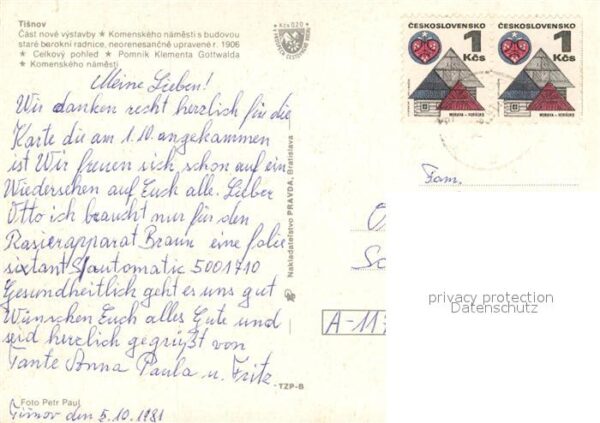 Tišnov
Část nové výstavby ★ Komenského náměstí s budovou
staré barokní radnice, neorenesančně upravené r. 1906
★ Celkový pohled ★ Pomník Klementa Gottwalda
★ Komenského náměstí
Kčs 0,20
ČESKOSLOVENSKO
1
Kčs
MORAVA - HORÁCKO
ČESKOSLOVENSKO
1
Kčs
MORAVA - HORÁCKO
Meine Lieben!
Wir danken recht herzlich für die
Karte die am 1.10. angekommen
ist Wir freuen sich schon auf ein
Wiedersehen auf Euch alle. Lieber
Otto ich braucht nur für den
Rasierapparat Braun eine folie
sixtant S/automatic 5001710
Gesundheitlich geht es uns gut
Wünschen Euch alles Gute und
seid herzlich gegrüßt von
Tante Anna Paula u. Fritz
Tišnov den 5.10.1981
Nakladatelství PRAVDA, Bratislava
TZP-B
Foto Petr Paul
Fam.
A-117
privacy protection
Datenschutz